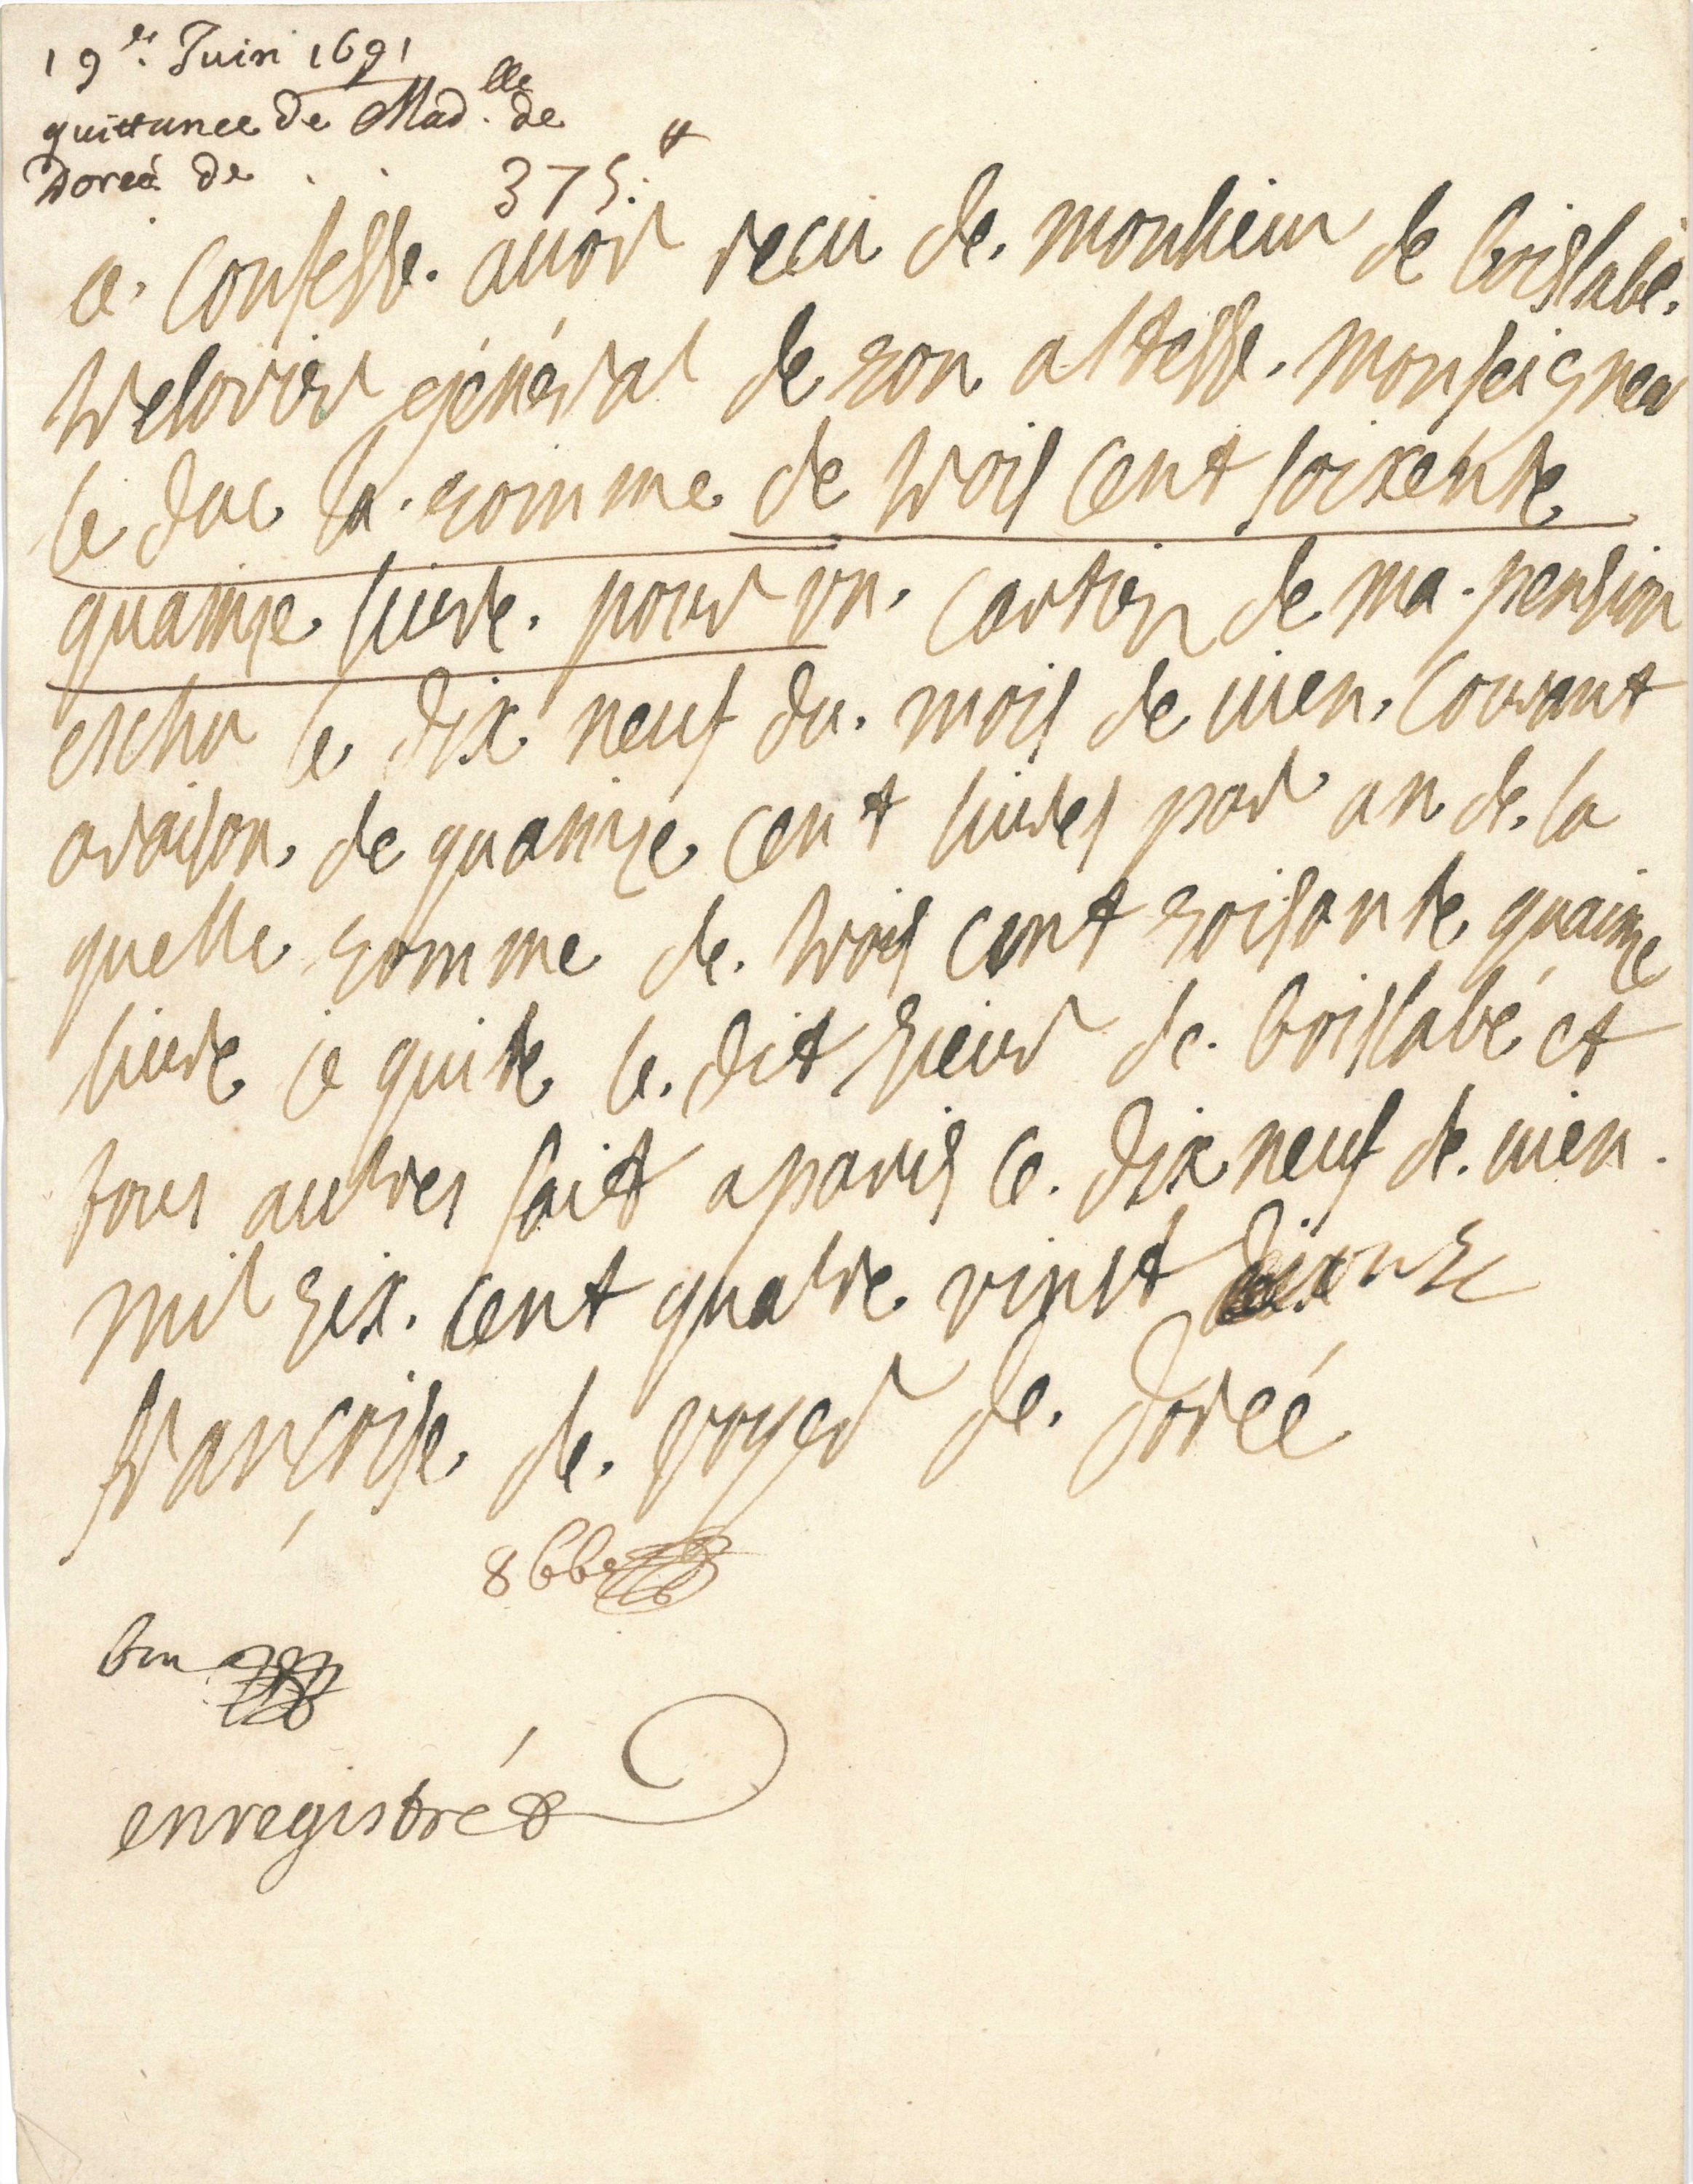 19.e Juin 1691
quittance de Mad.lle de
Doreé de . . 375.tt
ie confesse auoir recu de monsieur de boislabé
tresorier général de son altesse monseigneur
le duc la somme de trois cent soixente
quainze liure pour vn cartier de ma pension
eschu le dix neuf du mois de iuien courant
a raison de quainze cent liures par an de la
quelle somme de trois cent soisante quainze
liure ie quite le dit sieur de boislabé et
tous autres fait a paris ce dix neuf de iuien
mil six cent quatre vinst onze
françoise de voyer de doreé
bon
enregistrée